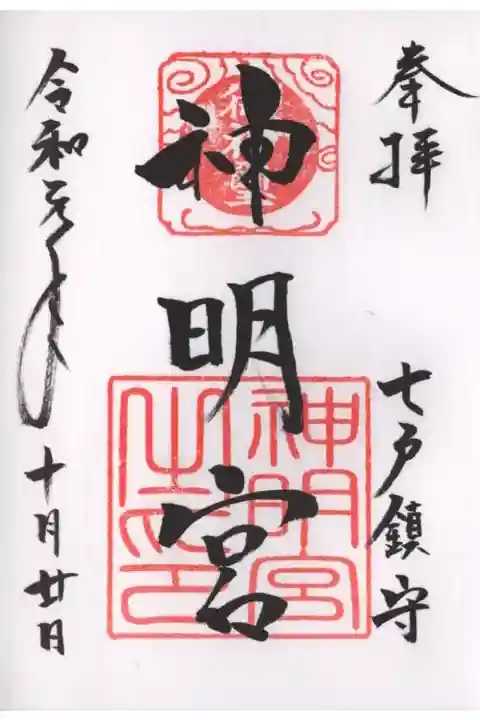 奉拝
七戸鎮守
神明宮
神明宮之印
令和元年十月廿日